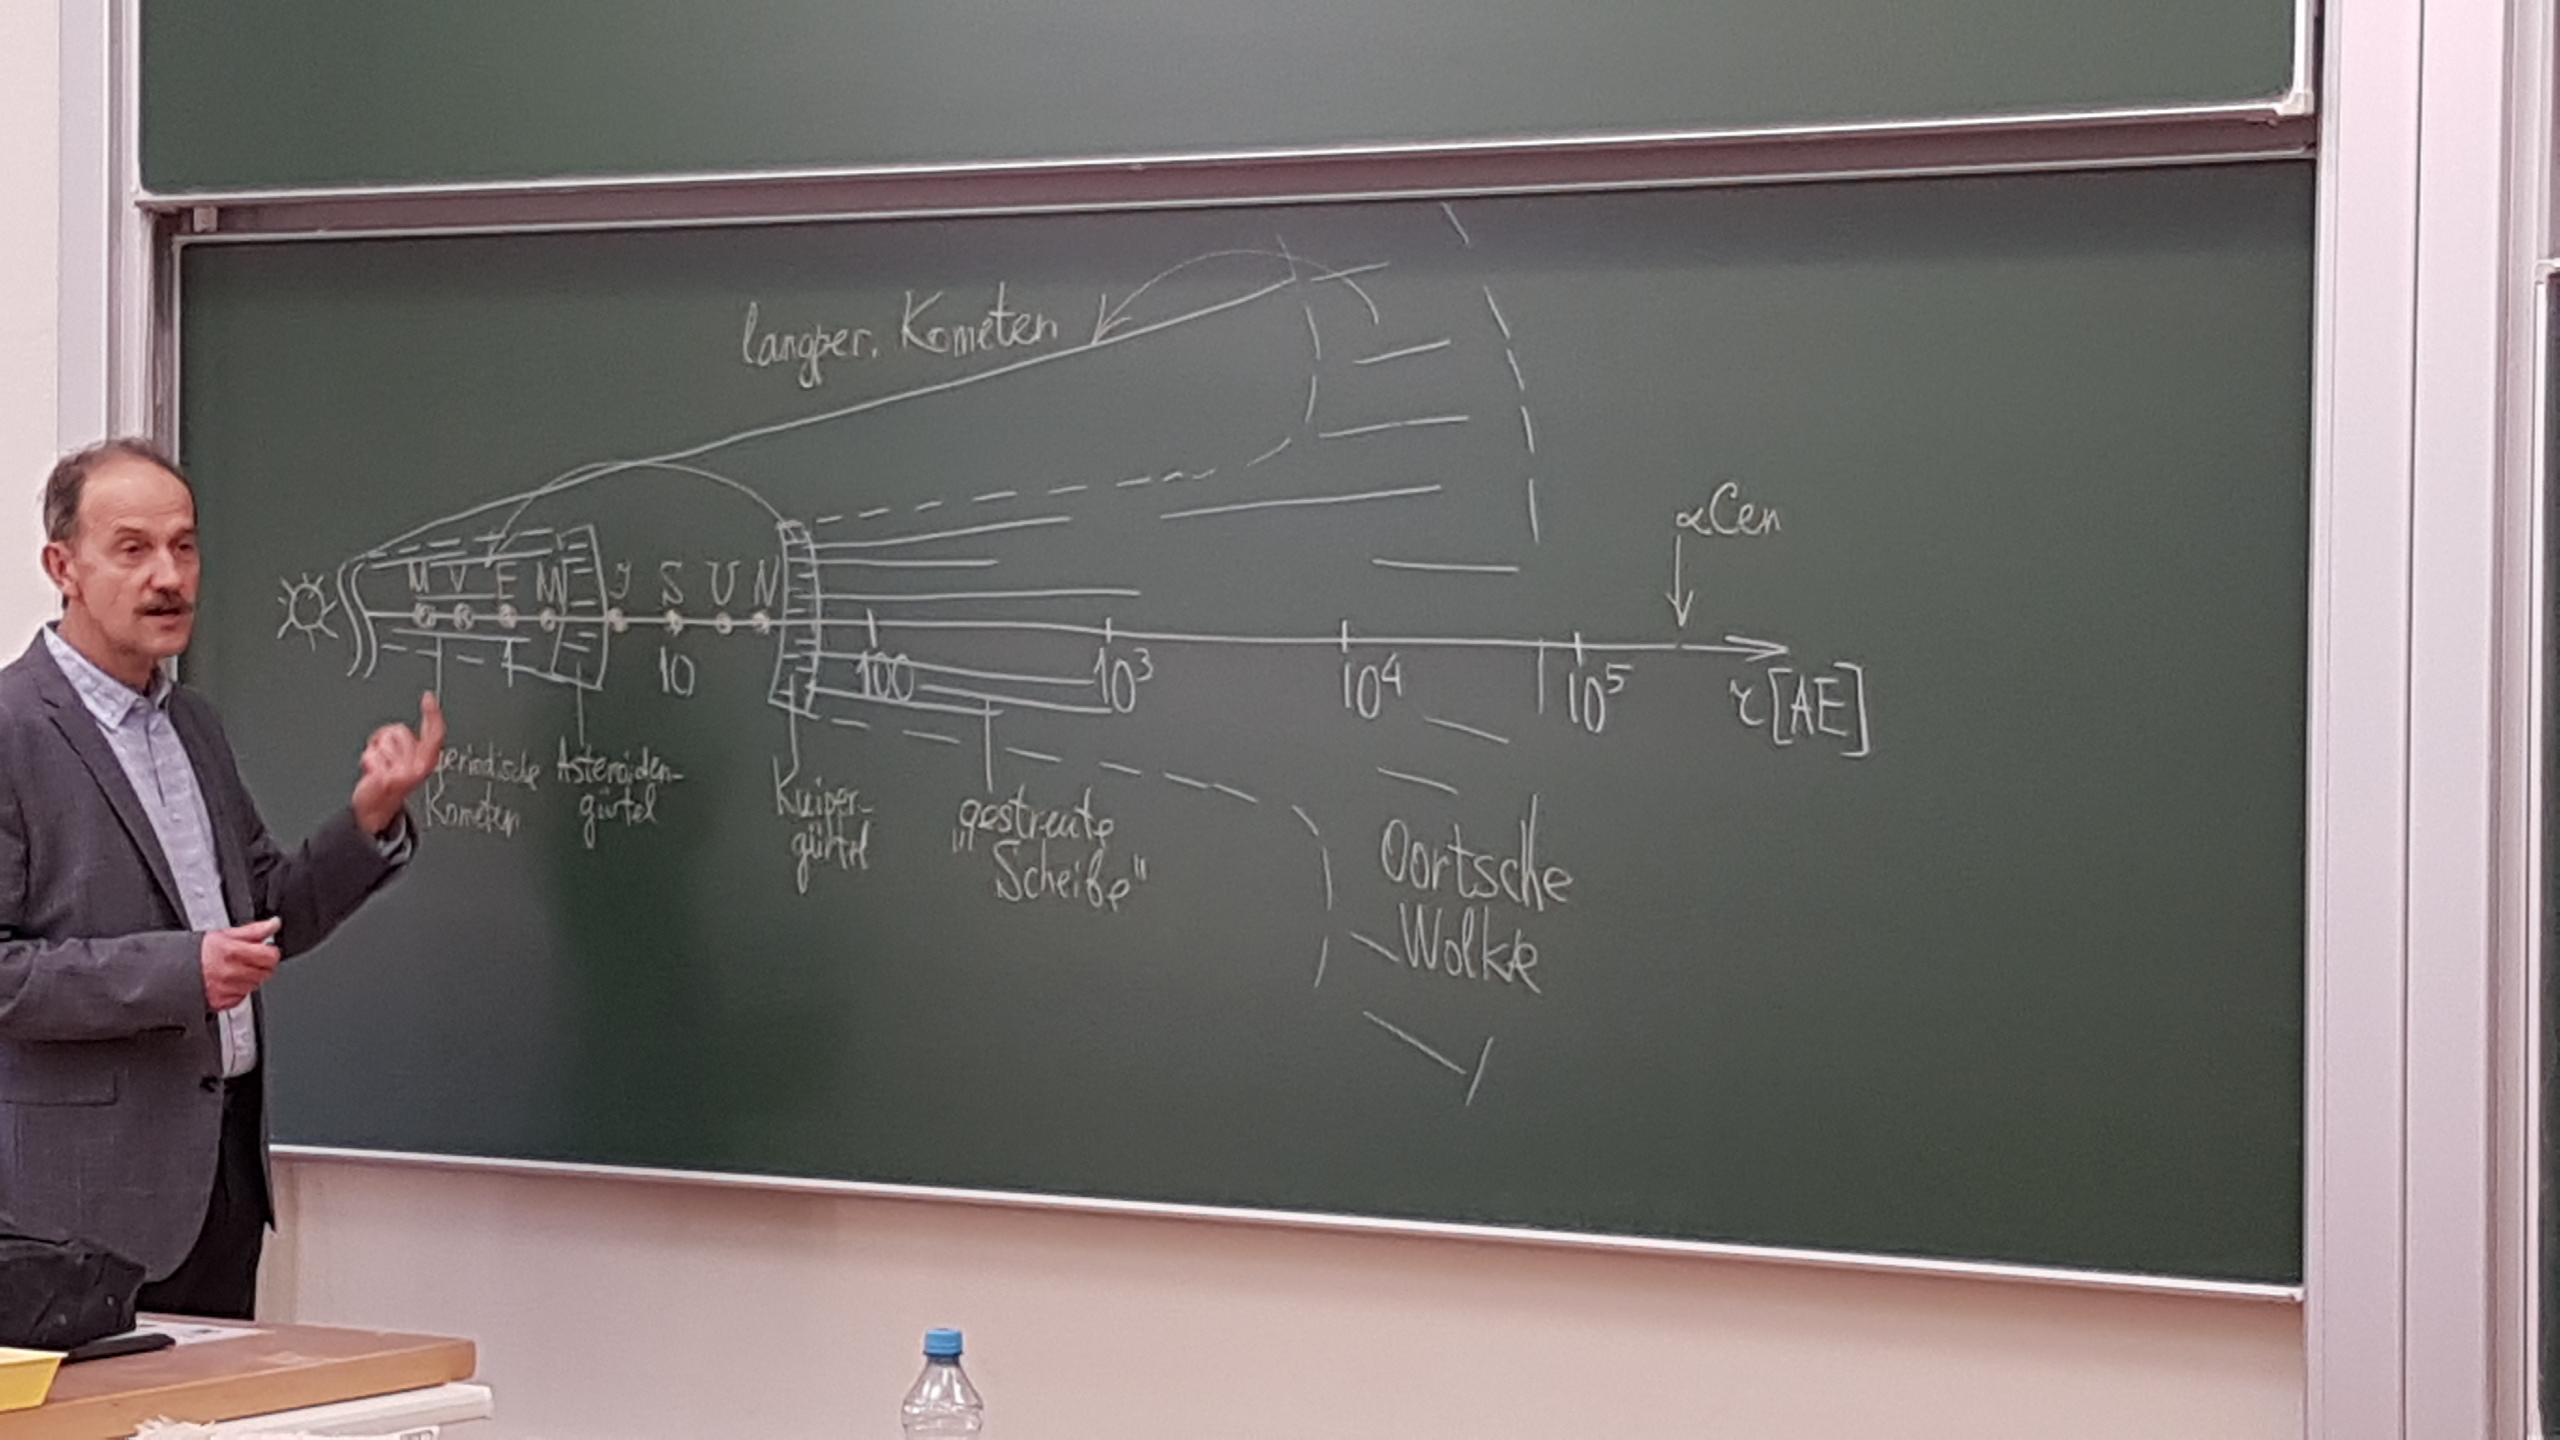 langper. Kometen
αCen
M V E M J S U N
1 10 100 10³ 10⁴ 10⁵ r[AE]
periodische
Kometen
Asteroiden-
gürtel
Kuiper-
gürtel
"gestreute
Scheibe"
Oortsche
Wolke